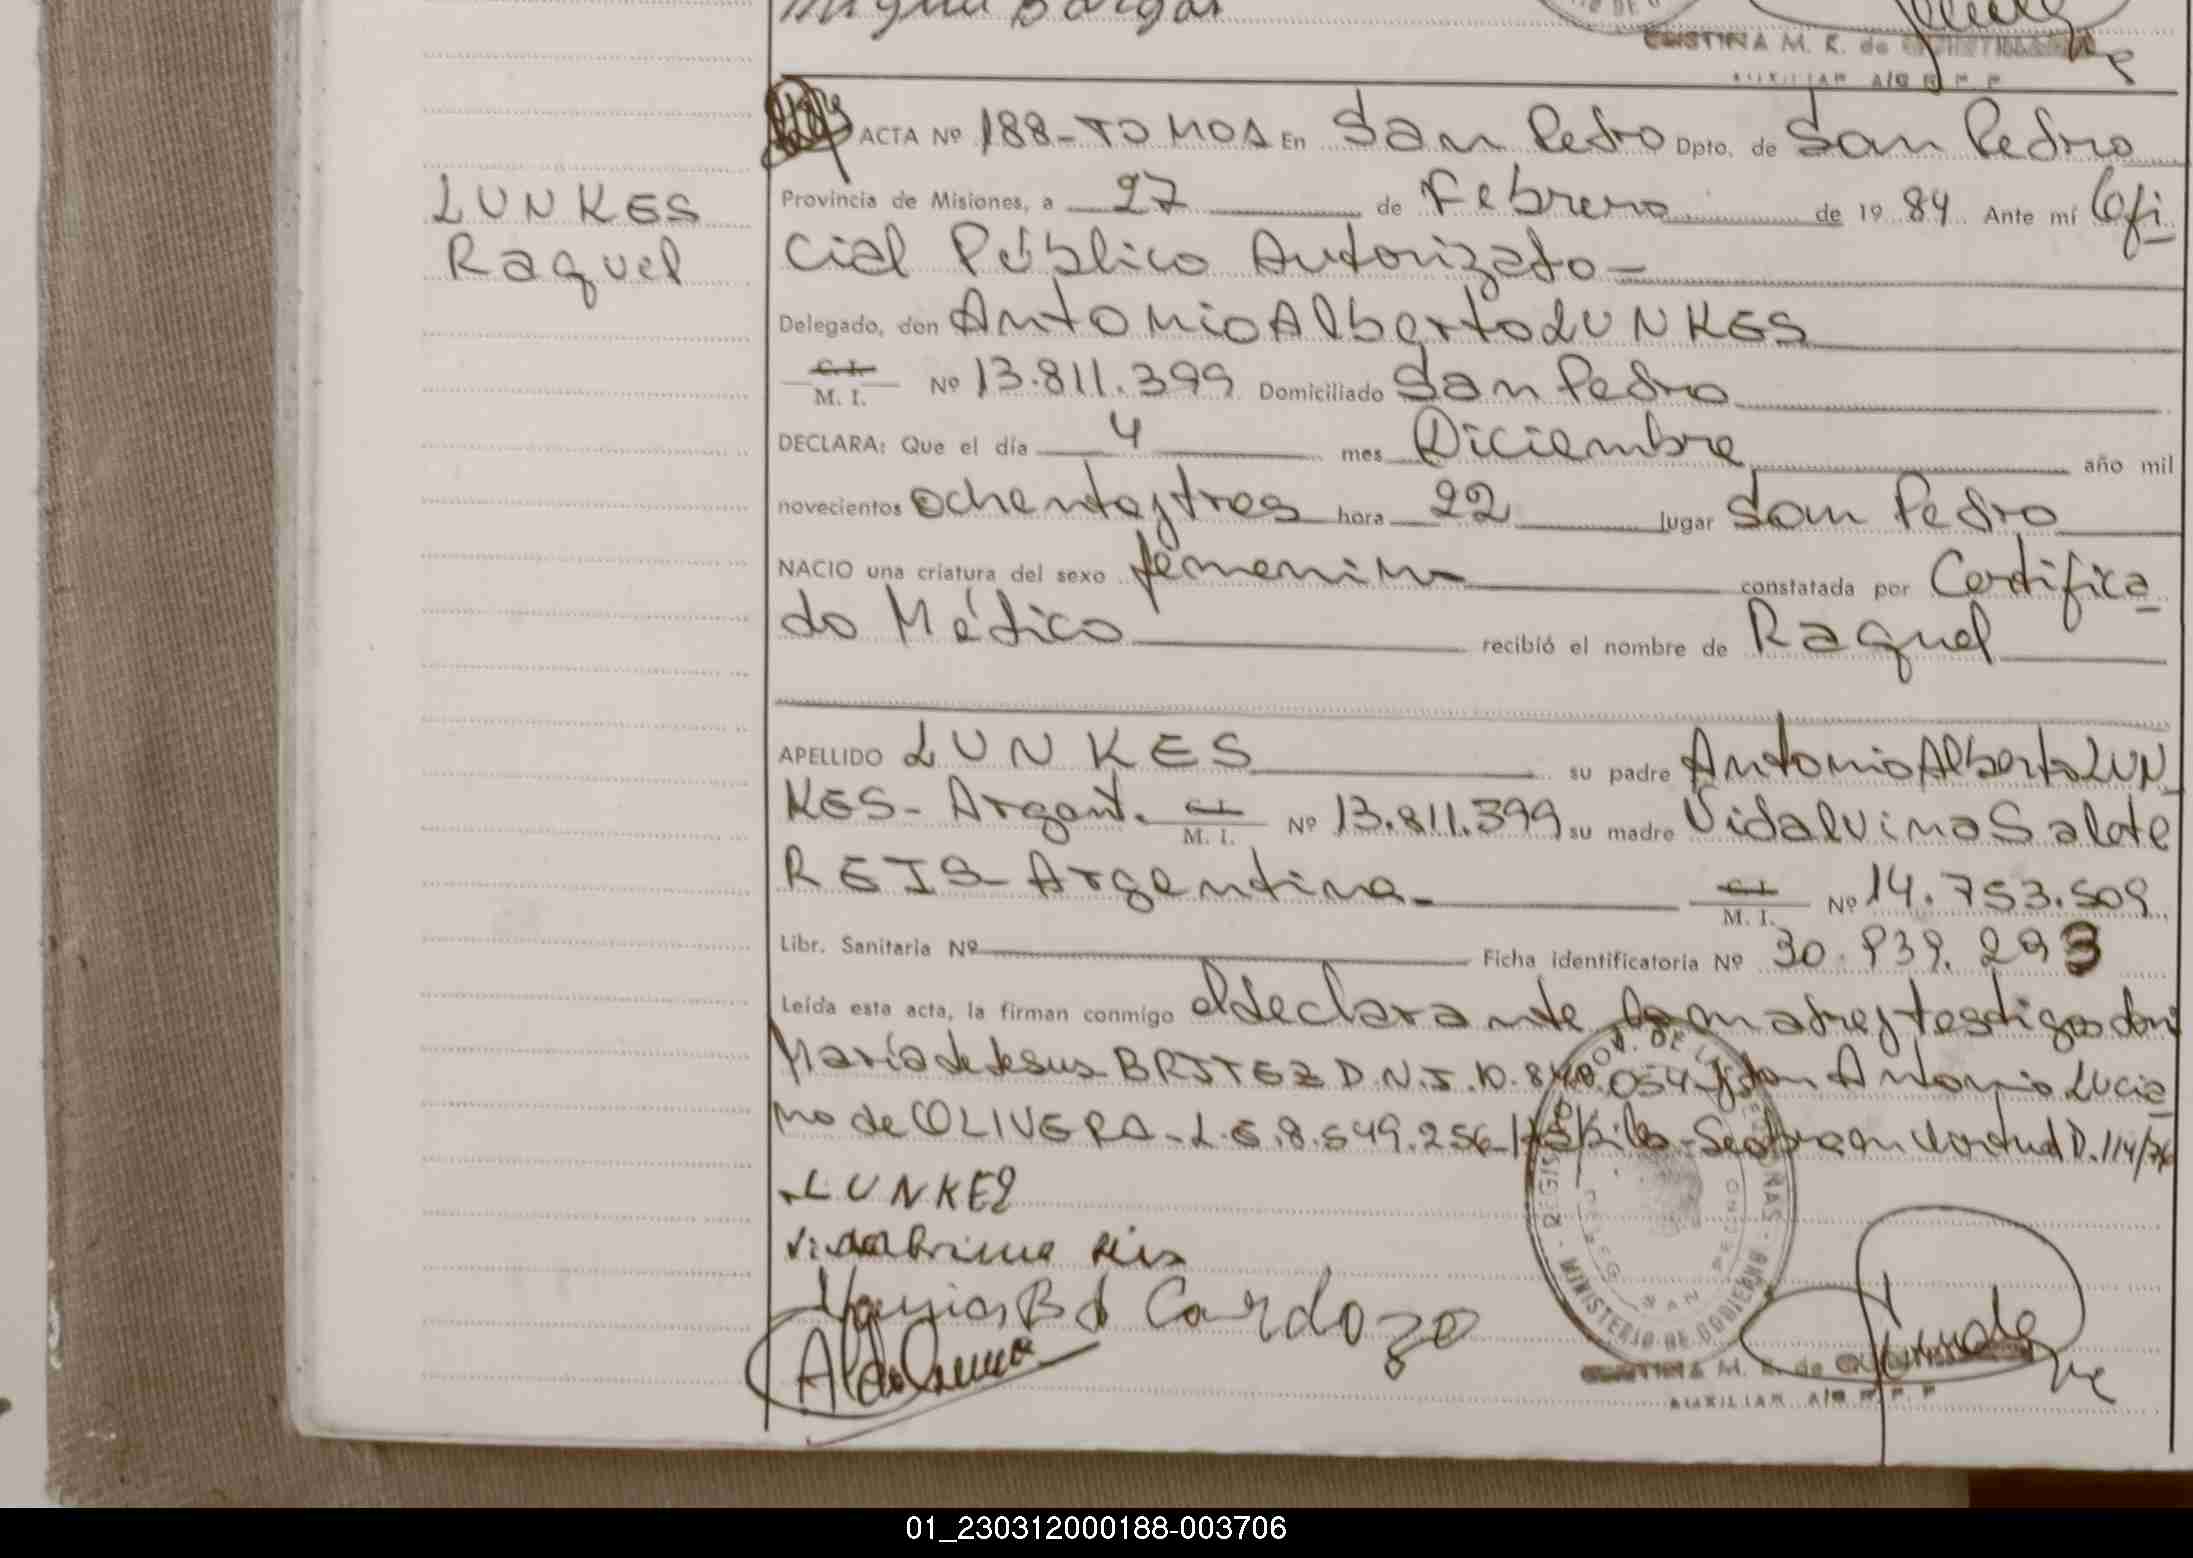 CRISTINA M. R. de
AUXILIAR A/G R. P. P
ACTA Nº 188-TOMO A En San Pedro Dpto. de San Pedro
Provincia de Misiones, a 27 de Febrero de 19 84 Ante mí Ofi
LUNKES
Raquel
cial Público Autorizado
Delegado, don Antonio Alberto LUNKES
C. I. / M. I. Nº 13.811.399 Domiciliado San Pedro
DECLARA: Que el día 4 mes Diciembre año mil
novecientos ochentaytres hora 22 lugar San Pedro
NACIO una criatura del sexo femenino constatada por Certifica
do Médico recibió el nombre de Raquel
APELLIDO LUNKES su padre Antonio Alberto LUN
KES- Argent. C. I. / M. I. Nº 13.811.399 su madre Vidalvina Salete
REIS- Argentina- C. I. / M. I. Nº 14.753.509
Libr. Sanitaria Nº Ficha identificatoria Nº 30.939.293
Leída esta acta, la firman conmigo el declarante la madre y testigos don
María de Jesus BRITEZ D.N.I. 10.840.054 y don Antonio Lucia
no de OLIVERA- L.E. 8.549.256- D.114/76
LUNKES
Cardozo
MINISTERIO DE GOBIERNO
CRISTINA M. R. de
AUXILIAR A/G R. P. P
01_230312000188-003706